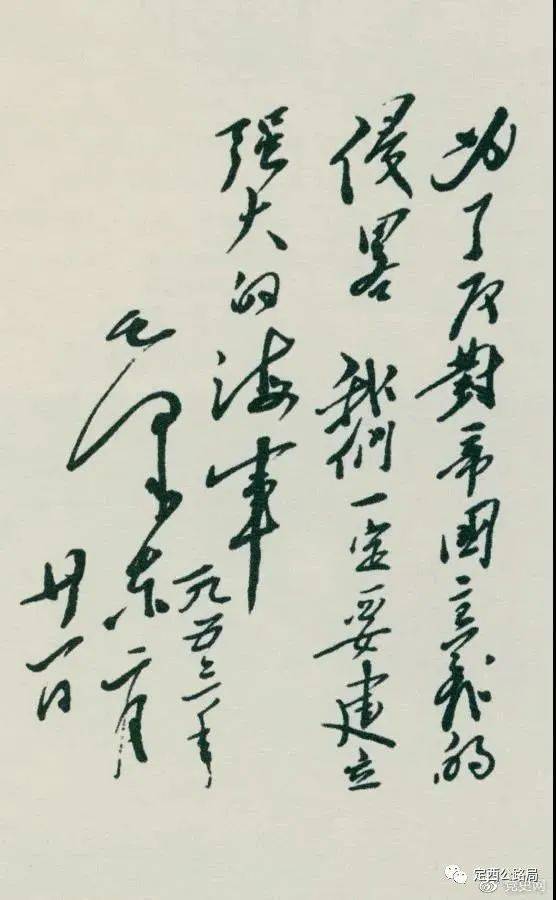 为了反對帝國主義的
侵畧 我們一定要建立
强大的海軍
毛澤东
一九五三年
二月
廿一日
定西公路局
@党史网